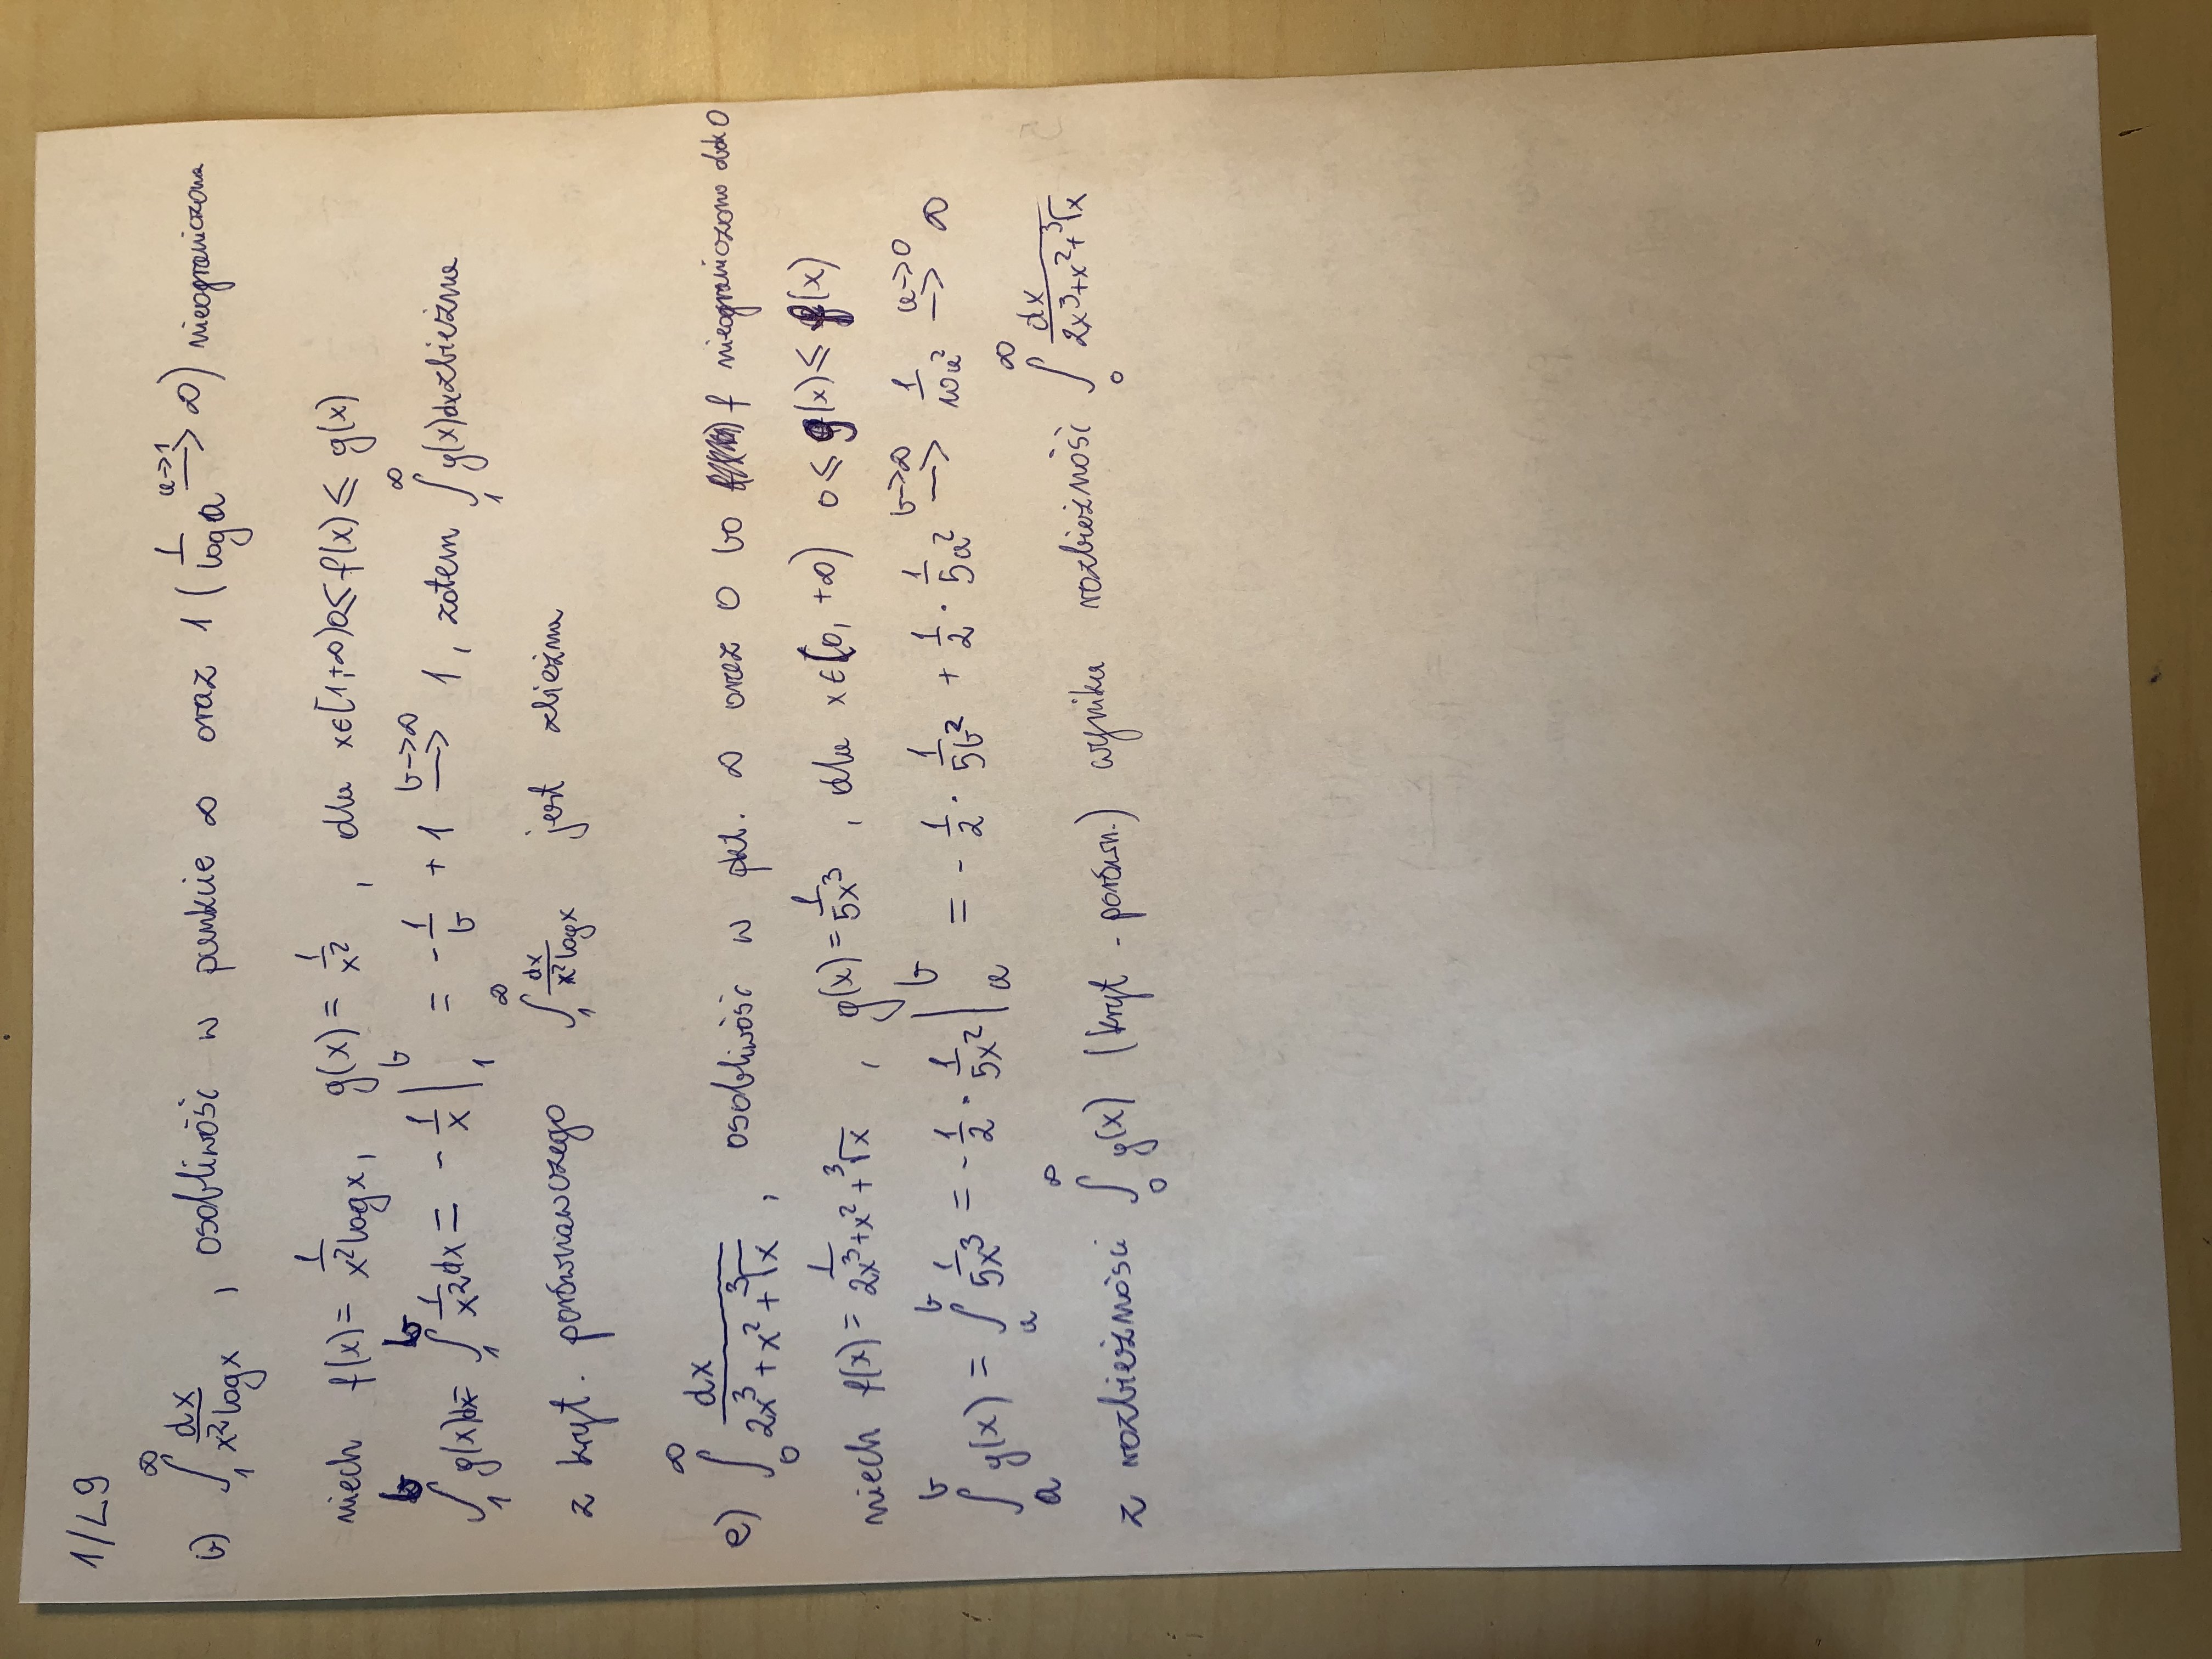 1/L9
b) ∫₁^∞ dx/(x² log x) , osobliwość w punkcie ∞ oraz 1 (1/log a →(a→1) ∞) nieograniczona
niech f(x) = 1/(x² log x), g(x) = 1/x² , dla x∈[1,+∞) 0≤f(x) ≤ g(x)
∫₁^b g(x)dx = ∫₁^b 1/x² dx = -1/x |₁^b = -1/b + 1 →(b→∞) 1 , zatem ∫₁^∞ g(x)dx zbieżna
z kryt. porównawczego ∫₁^∞ dx/(x² log x) jest zbieżna
e) ∫₀^∞ dx/(2x³ + x² + ³√x) , osobliwość w pkt. ∞ oraz 0 bo f nieograniczona 0
niech f(x) = 1/(2x³+x²+³√x) , g(x) = 1/(5x³) , dla x∈(0, +∞) 0 ≤ g(x) ≤ f(x)
∫ₐ^b g(x) = ∫ₐ^b 1/(5x³) = -1/2 · 1/(5x²) |ₐ^b = -1/2 · 1/(5b²) + 1/2 · 1/(5a²) →(b→∞) 1/(10a²) →(a→0) ∞
z rozbieżności ∫₀^∞ g(x) (kryt. porówn.) wynika rozbieżność ∫₀^∞ dx/(2x³+x²+³√x)